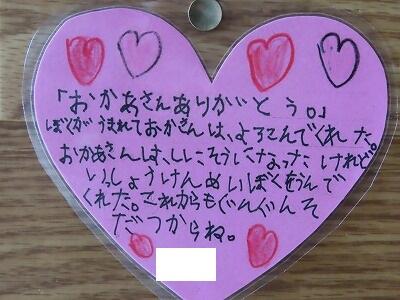 「おかあさんありがとう。」
ぼくがうまれておかさんは、よろこんでくれた。
おかあさんは、しにそうになったけれど
いっしょうけんめいぼくをうんで
くれた。これからもぐんぐんそ
だつからね。